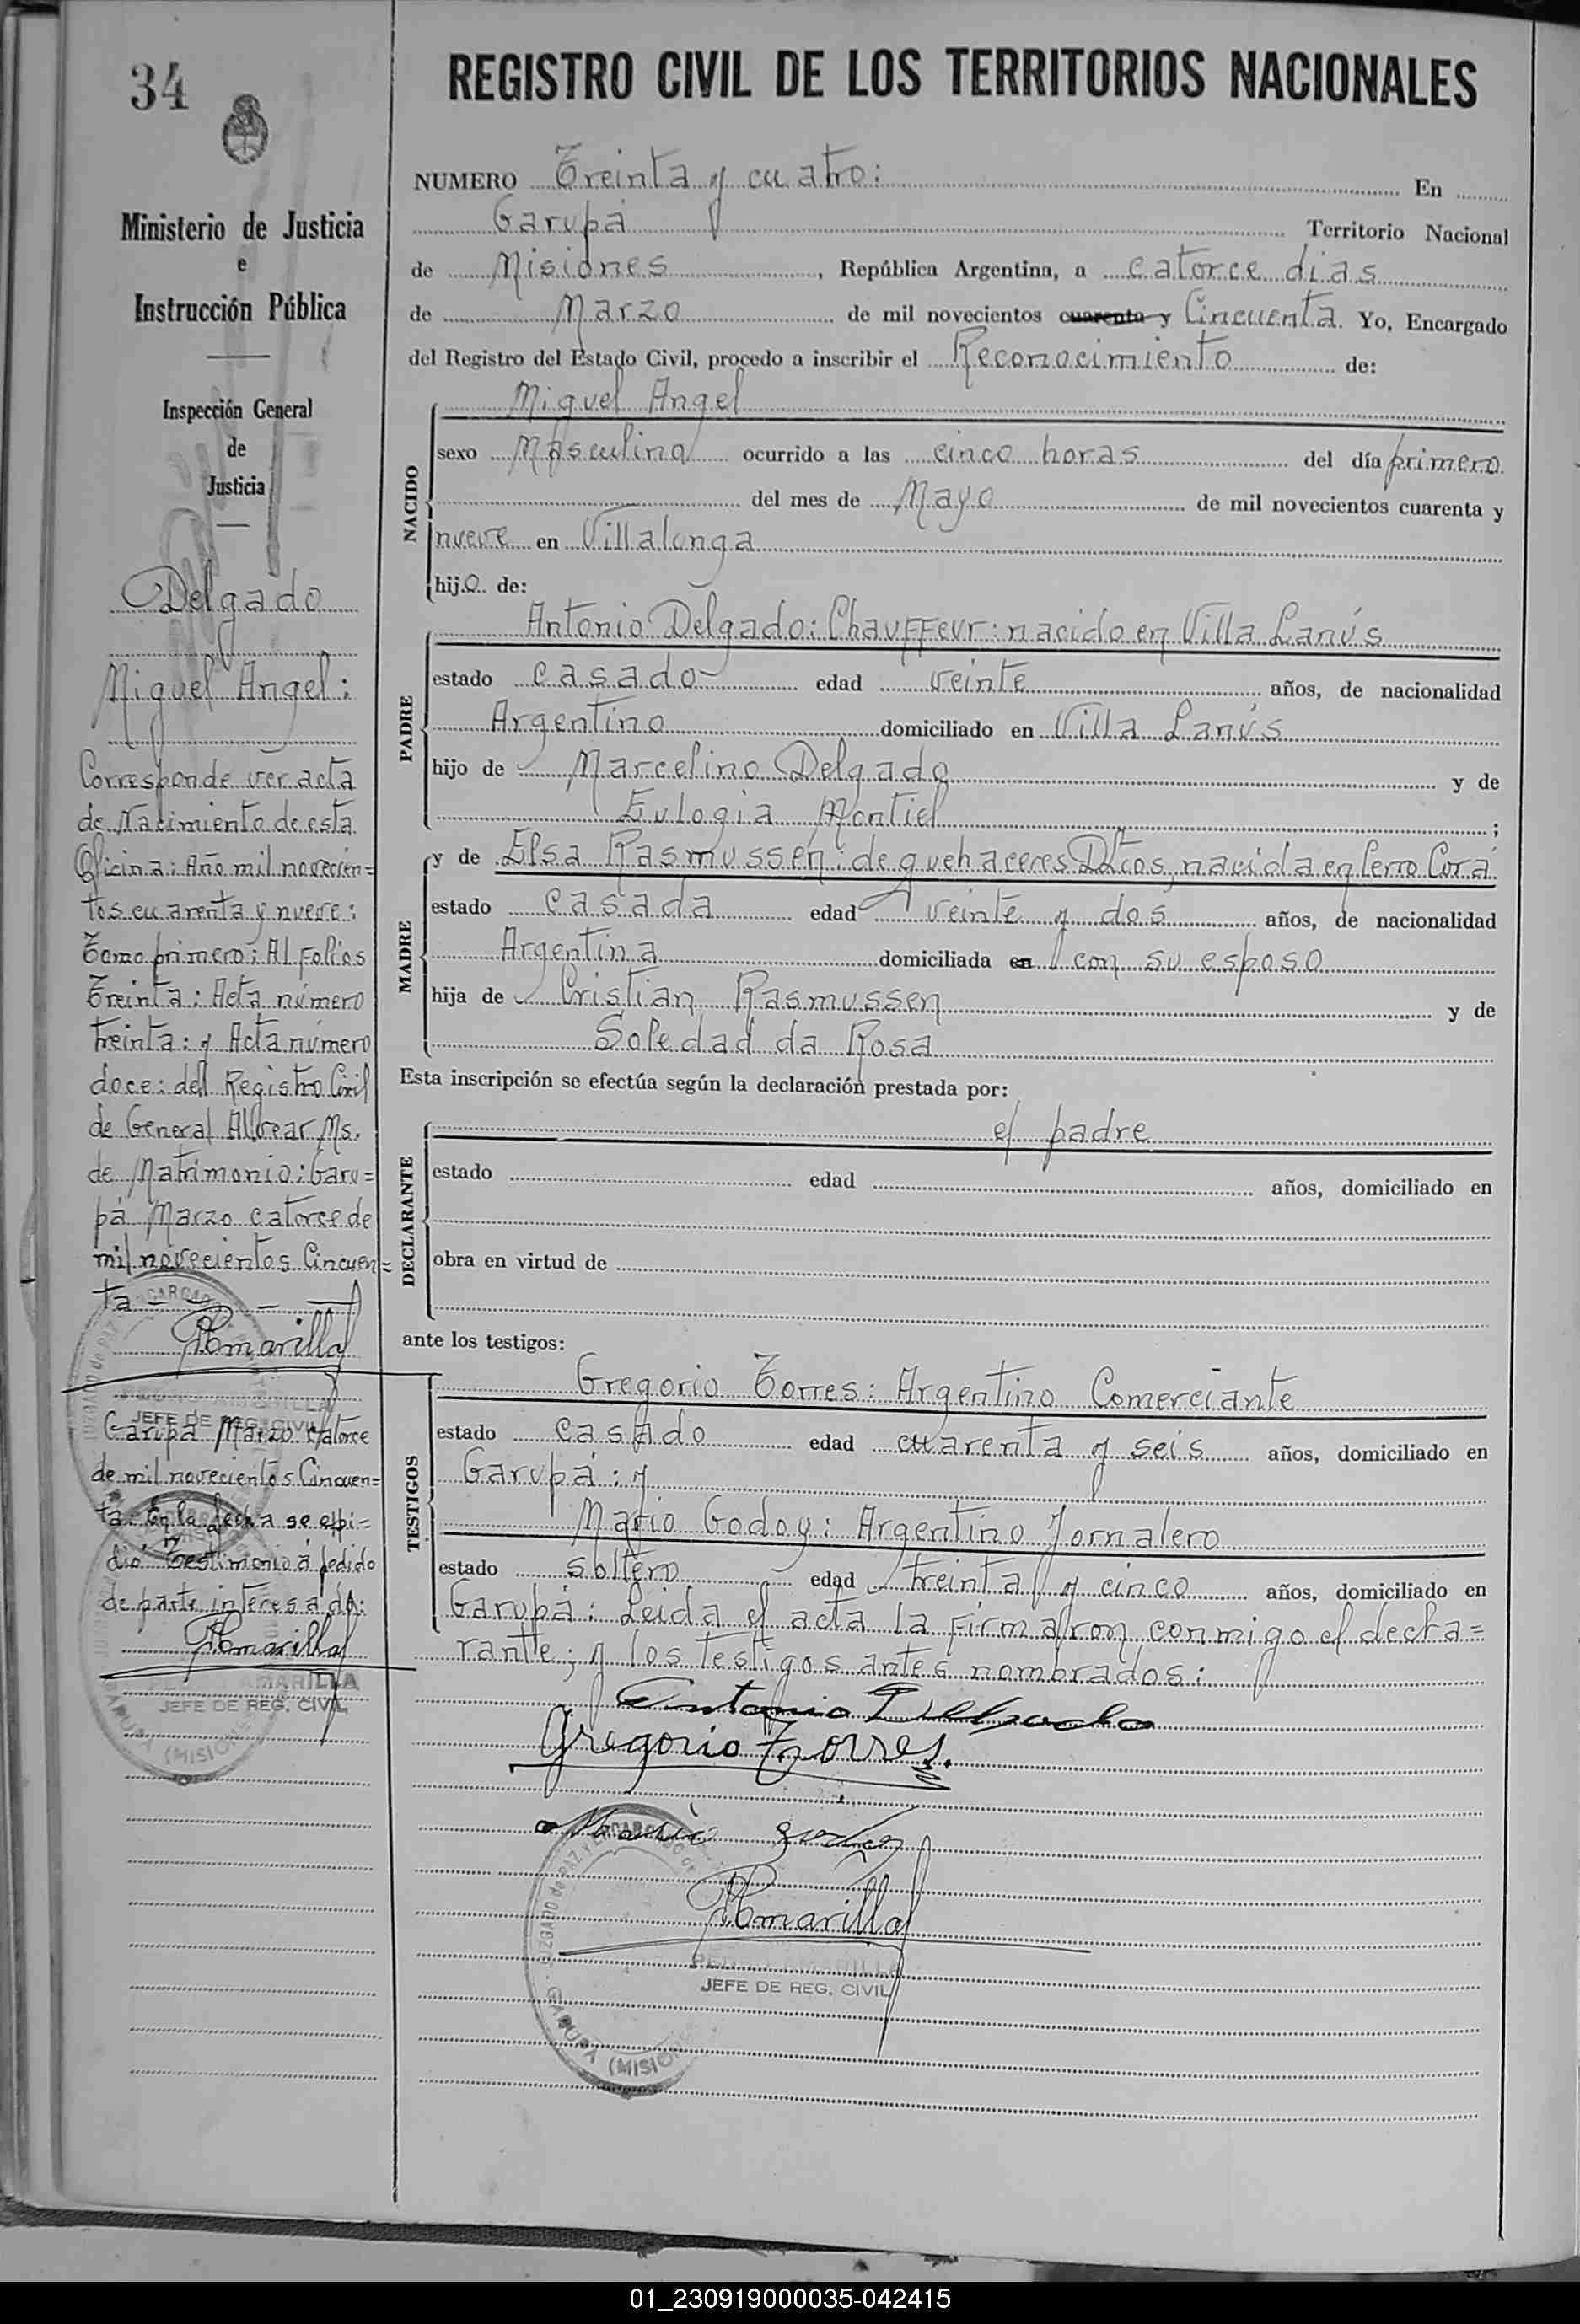 34
Ministerio de Justicia
e
Instrucción Pública
Inspección General
de
Justicia
Delgado
Miguel Angel:
Corresponde ver acta
de Nacimiento de esta
Oficina: Año mil novecien=
tos cuarenta y nueve:
Tomo primero: Al Folios
Treinta: Acta número
treinta: y Acta número
doce: del Registro Civil
de General Alvear Ms.
de Matrimonio: Garu=
pá Marzo catorce de
mil novecientos Cincuen=
ta
PAmarilla
JEFE DE REG. CIVIL
Garupá Marzo catorce
de mil novecientos Cincuen=
ta: En la fecha se expi=
dió testimonio a pedido
de parte interesada:
PAmarilla
AMARILLA
JEFE DE REG. CIVIL
(MISIONES)
REGISTRO CIVIL DE LOS TERRITORIOS NACIONALES
NUMERO Treinta y cuatro: En
Garupá Territorio Nacional
de Misiones, República Argentina, a catorce dias
de Marzo de mil novecientos cuarenta y Cincuenta. Yo, Encargado
del Registro del Estado Civil, procedo a inscribir el Reconocimiento de:
NACIDO
Miguel Angel
sexo Masculino ocurrido a las cinco horas del día primero
del mes de Mayo de mil novecientos cuarenta y
nueve en Villalonga
hijo de:
PADRE
Antonio Delgado: Chauffeur: nacido en Villa Lanús
estado casado edad veinte años, de nacionalidad
Argentino domiciliado en Villa Lanús
hijo de Marcelino Delgado y de
Eulogia Montiel;
MADRE
y de Elsa Rasmussen: de quehaceres Dtcos, nacida en Cerro Corá
estado casada edad veinte y dos años, de nacionalidad
Argentina domiciliada en con su esposo
hija de Cristian Rasmussen y de
Soledad da Rosa
Esta inscripción se efectúa según la declaración prestada por:
DECLARANTE
el padre
estado edad años, domiciliado en
obra en virtud de
ante los testigos:
TESTIGOS
Gregorio Torres: Argentino Comerciante
estado casado edad cuarenta y seis años, domiciliado en
Garupá: y
Mario Godoy: Argentino Jornalero
estado soltero edad treinta y cinco años, domiciliado en
Garupá: Leida el acta la firmaron conmigo el decla=
rante; y los testigos antes nombrados:
Antonio Delgado
Gregorio Torres.
Mario Godoy
PAmarilla
PEDRO AMARILLA
JEFE DE REG. CIVIL
GARUPA (MISIONES)
01_230919000035-042415